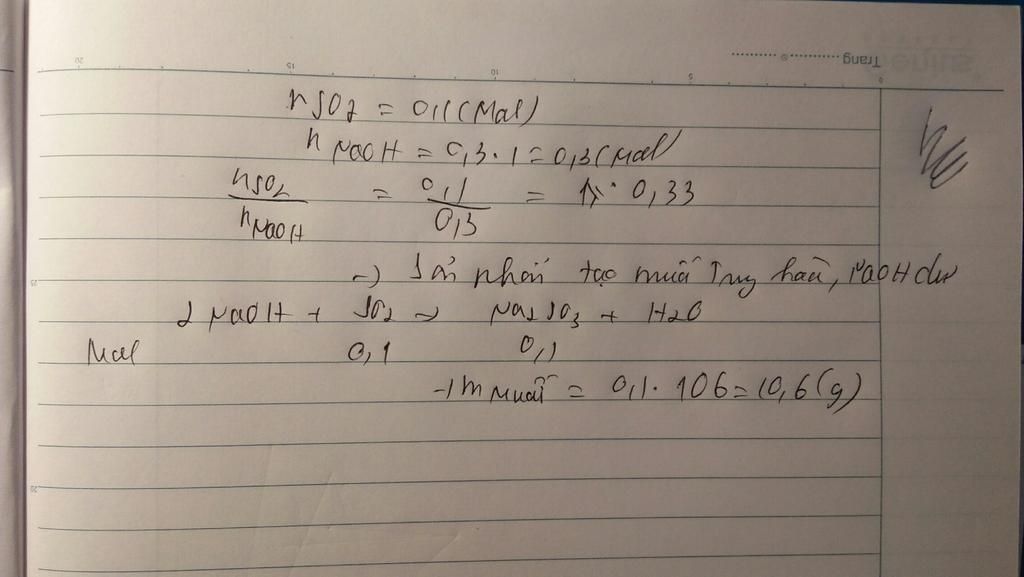 Trang
20 15 10 5 0
nSO2 = 0,1 (mol)
nNaOH = 0,3 . 1 = 0,3 (mol)
nSO2 / nNaOH = 0,1 / 0,3 = 0,33
→ Sản phẩm tạo muối trung hoà, NaOH dư
2 NaOH + SO2 → Na2SO3 + H2O
Mol 0,1 0,1
→ m muối = 0,1 . 106 = 10,6 (g)
25
30